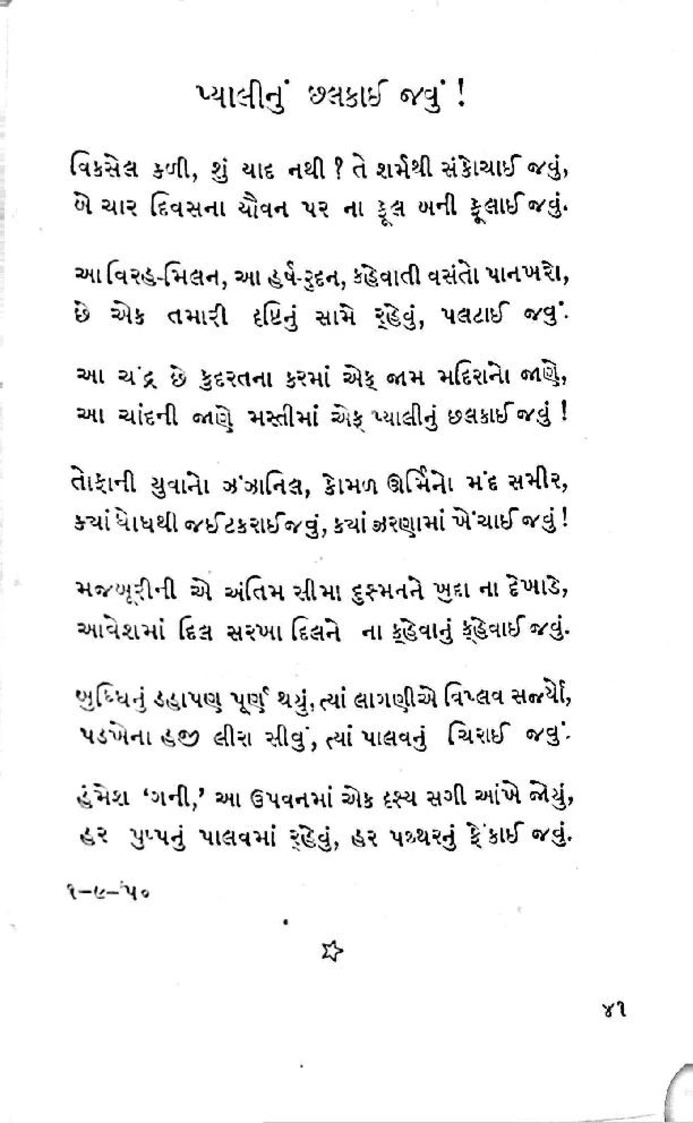 પ્યાલીનું છલકાઈ જવું !
વિકસેલ કળી, શું યાદ નથી ? તે શર્મથી સંકોચાઈ જવું,
બે ચાર દિવસના યૌવન પર ના ફૂલ બની ફૂલાઈ જવું.
આ વિરહ-મિલન, આ હર્ષ-રુદન, કહેવાતી વસંતો પાનખરો,
છે એક તમારી દૃષ્ટિનું સામે ર્‌હેવું, પલટાઈ જવું.
આ ચંદ્ર છે કુદરતના કરમાં એક જામ મદિરાનો જાણે,
આ ચાંદની જાણે મસ્તીમાં એક પ્યાલીનું છલકાઈ જવું !
તોફાની યુવાનો ઝંઝાનિલ, કોમળ ઊર્મિનો મંદ સમીર,
ક્યાં ધોધથી જઈ ટકરાઈ જવું, ક્યાં ઝરણામાં ખેંચાઈ જવું !
મજબૂરીની એ અંતિમ સીમા દુશ્મનને ખુદા ના દેખાડે,
આવેશમાં દિલ સરખા દિલને ના ક્‌હેવાનું ક્‌હેવાઈ જવું.
બુધ્ધિનું ડહાપણ પૂર્ણ થયું, ત્યાં લાગણીએ વિપ્લવ સર્જ્યો,
પડખેના હજી લીરા સીવું, ત્યાં પાલવનું ચિરાઈ જવું.
હંમેશ ‘ગની,’ આ ઉપવનમાં એક દૃશ્ય સગી આંખે જોયું,
હર પુષ્પનું પાલવમાં ર્‌હેવું, હર પથ્થરનું ફેંકાઈ જવું.
૧-૯-’૫૦
૪૧